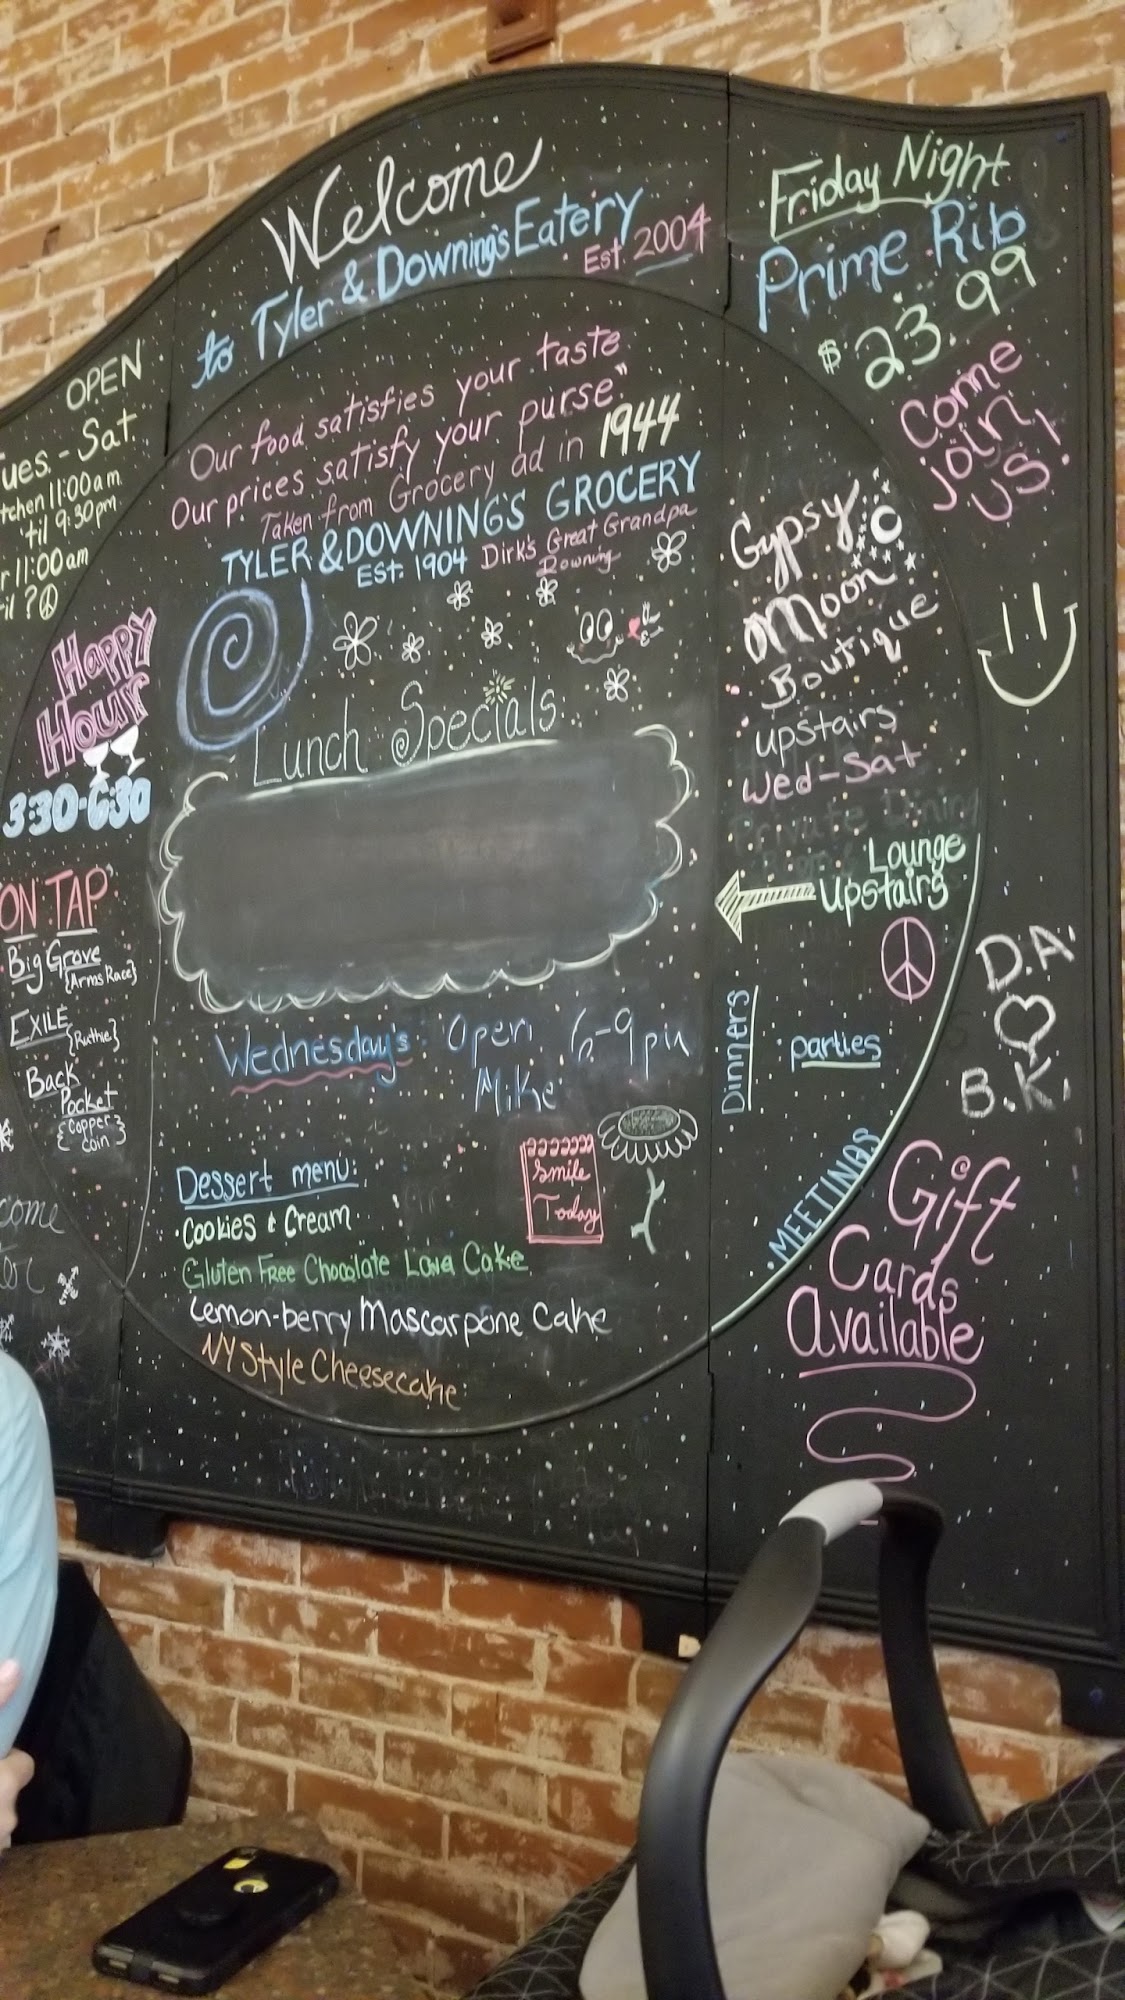 Welcome
to Tyler & Downing's Eatery
Est. 2004
Our food satisfies your taste
Our prices satisfy your purse."
Taken from Grocery ad in 1944
TYLER & DOWNING'S GROCERY
EST. 1904 Dirk's Great Grandpa
Downing
Lunch Specials
Wednesday's Open 6-9pm
Mike
Smile
Today
Dessert menu:
Cookies & Cream
Gluten Free Chocolate Lava Cake
Lemon-berry Mascarpone Cake
NY Style Cheesecake
OPEN
ues. - Sat
tchen 11:00 am
til 9:30pm
r 11:00 am
til ?
Happy
Hour
3:30-6:30
ON TAP
Big Grove
{Arms Race}
EXILE
{Ruthie}
Back
Pocket
{Copper
Coin}
come
Friday Night
Prime Rib
$23.99
Come
join
us!
Gypsy
Moon
Boutique
upstairs
Wed-Sat
Private Dining
Lounge
Upstairs
Dinners
parties
MEETINGS
D.A.
B.K.
Gift
Cards
Available